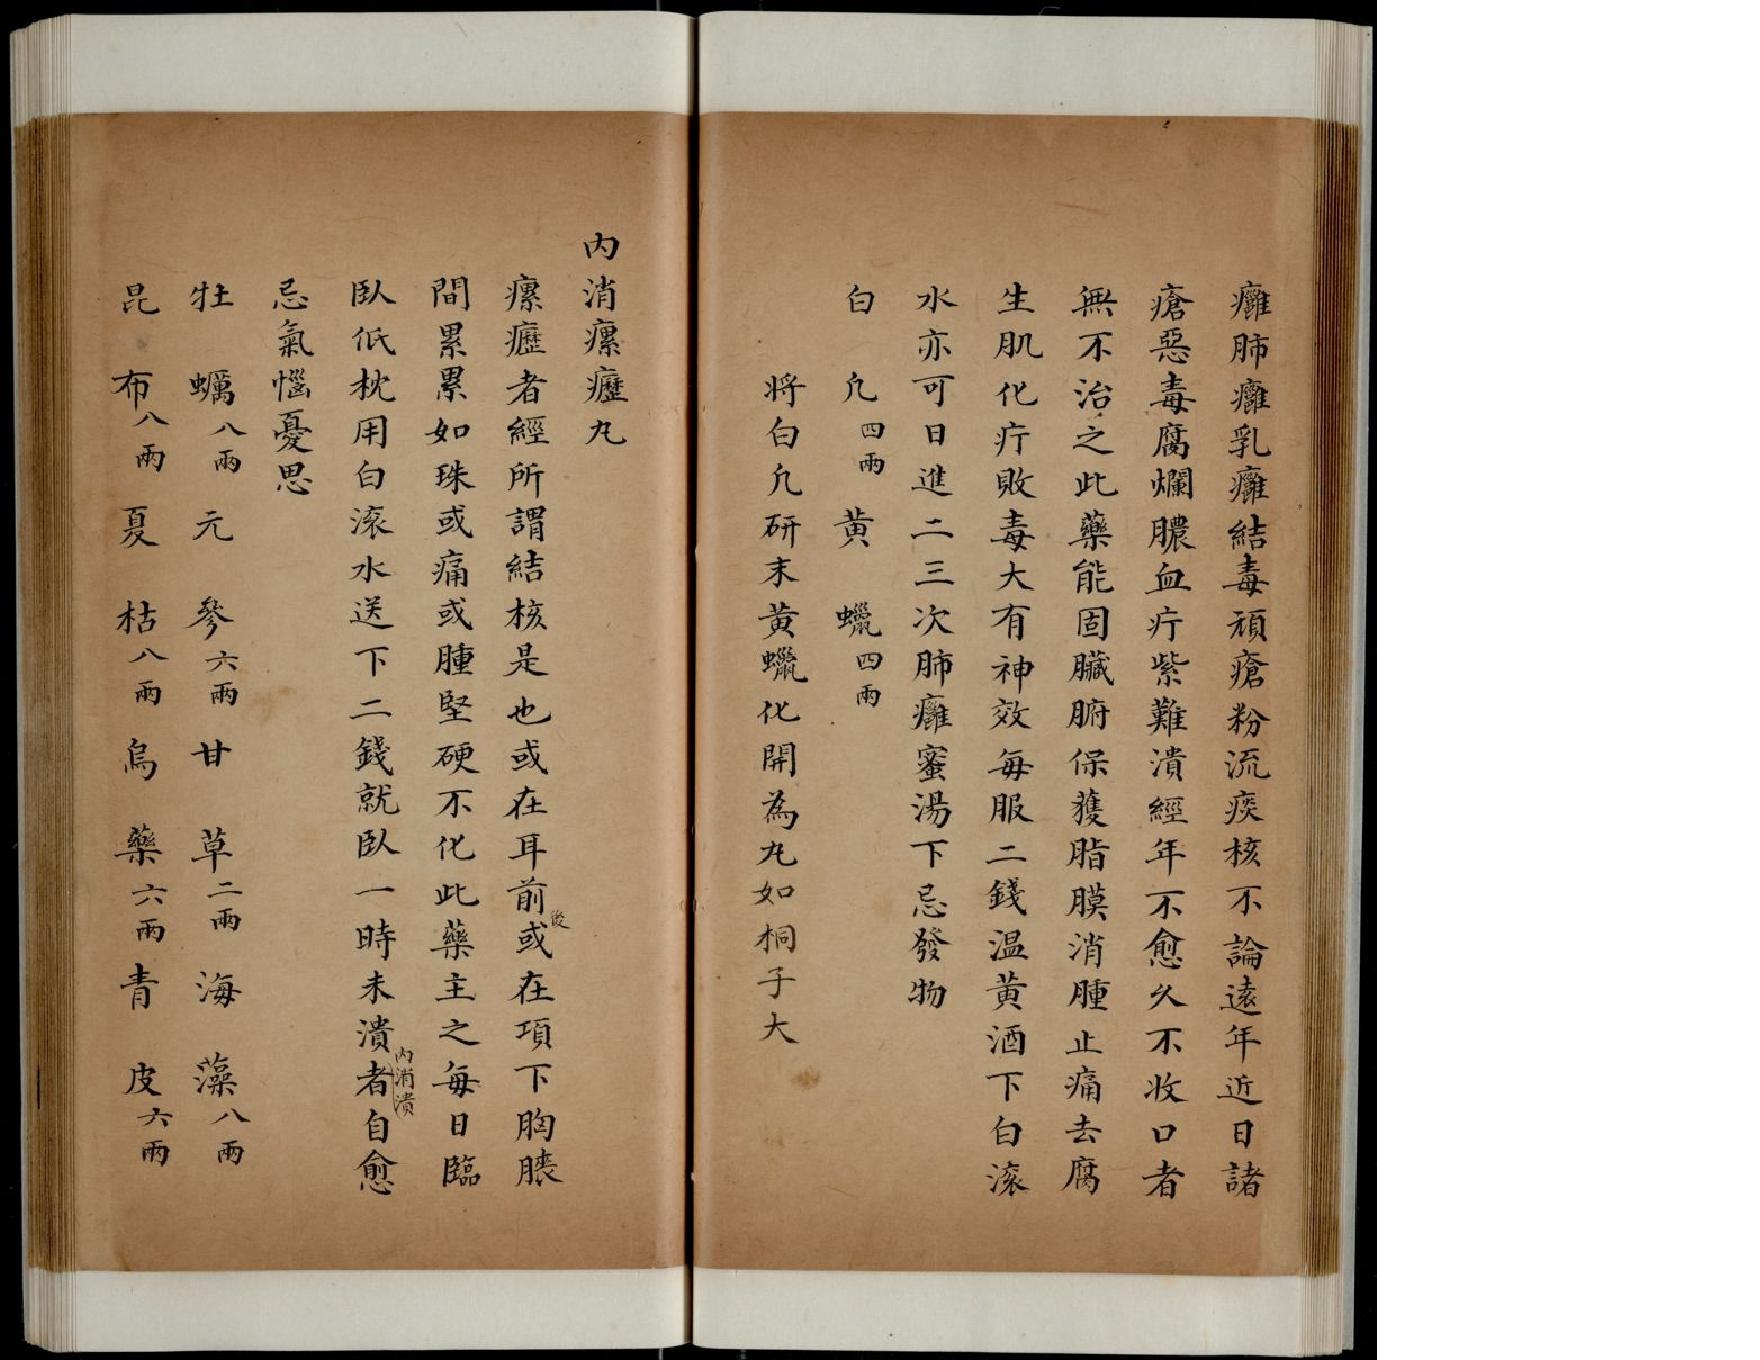 癰肺癰乳癰結毒頑瘡粉流痰核不論遠年近日諸
瘡惡毒腐爛膿血疔紫難潰經年不愈久不收口者
無不治之此藥能固臟腑保獲脂膜消腫止痛去腐
生肌化疔敗毒大有神效每服二錢温黄酒下白滚
水亦可日進二三次肺癰蜜湯下忌發物
白凡四兩黄蠟四兩
將白凡研末黄蠟化開為丸如桐子大
内消瘰癧丸
瘰癧者經所謂結核是也或在耳前後或在項下胸腋
間累累如珠或痛或腫堅硬不化此藥主之每日臨
臥低枕用白滚水送下二錢就臥一時未潰者内消潰者自愈
忌氣惱憂思
牡蠣八兩元參六兩甘草二兩海藻八兩
昆布八兩夏枯八兩烏藥六兩青皮六兩